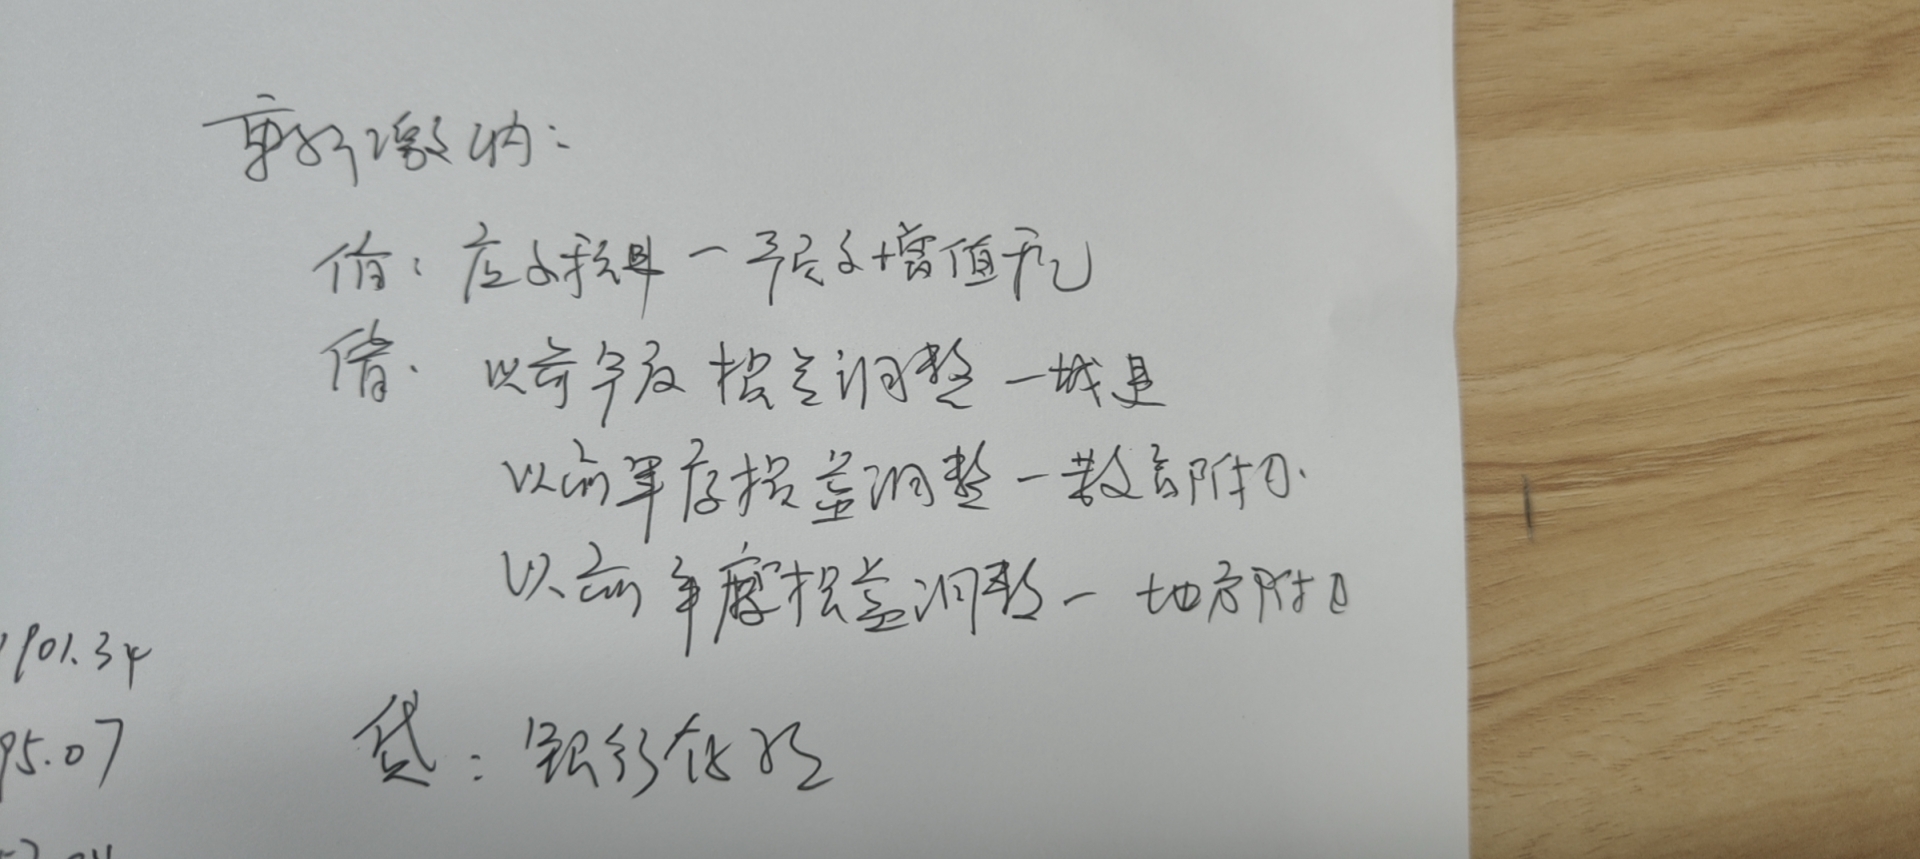 重新缴纳:
借: 应交税费一预交增值税
借. 以前年度损益调整一城建
以前年度损益调整一教育附加
以前年度损益调整一地方附加
1901.34
95.07
贷: 银行存款